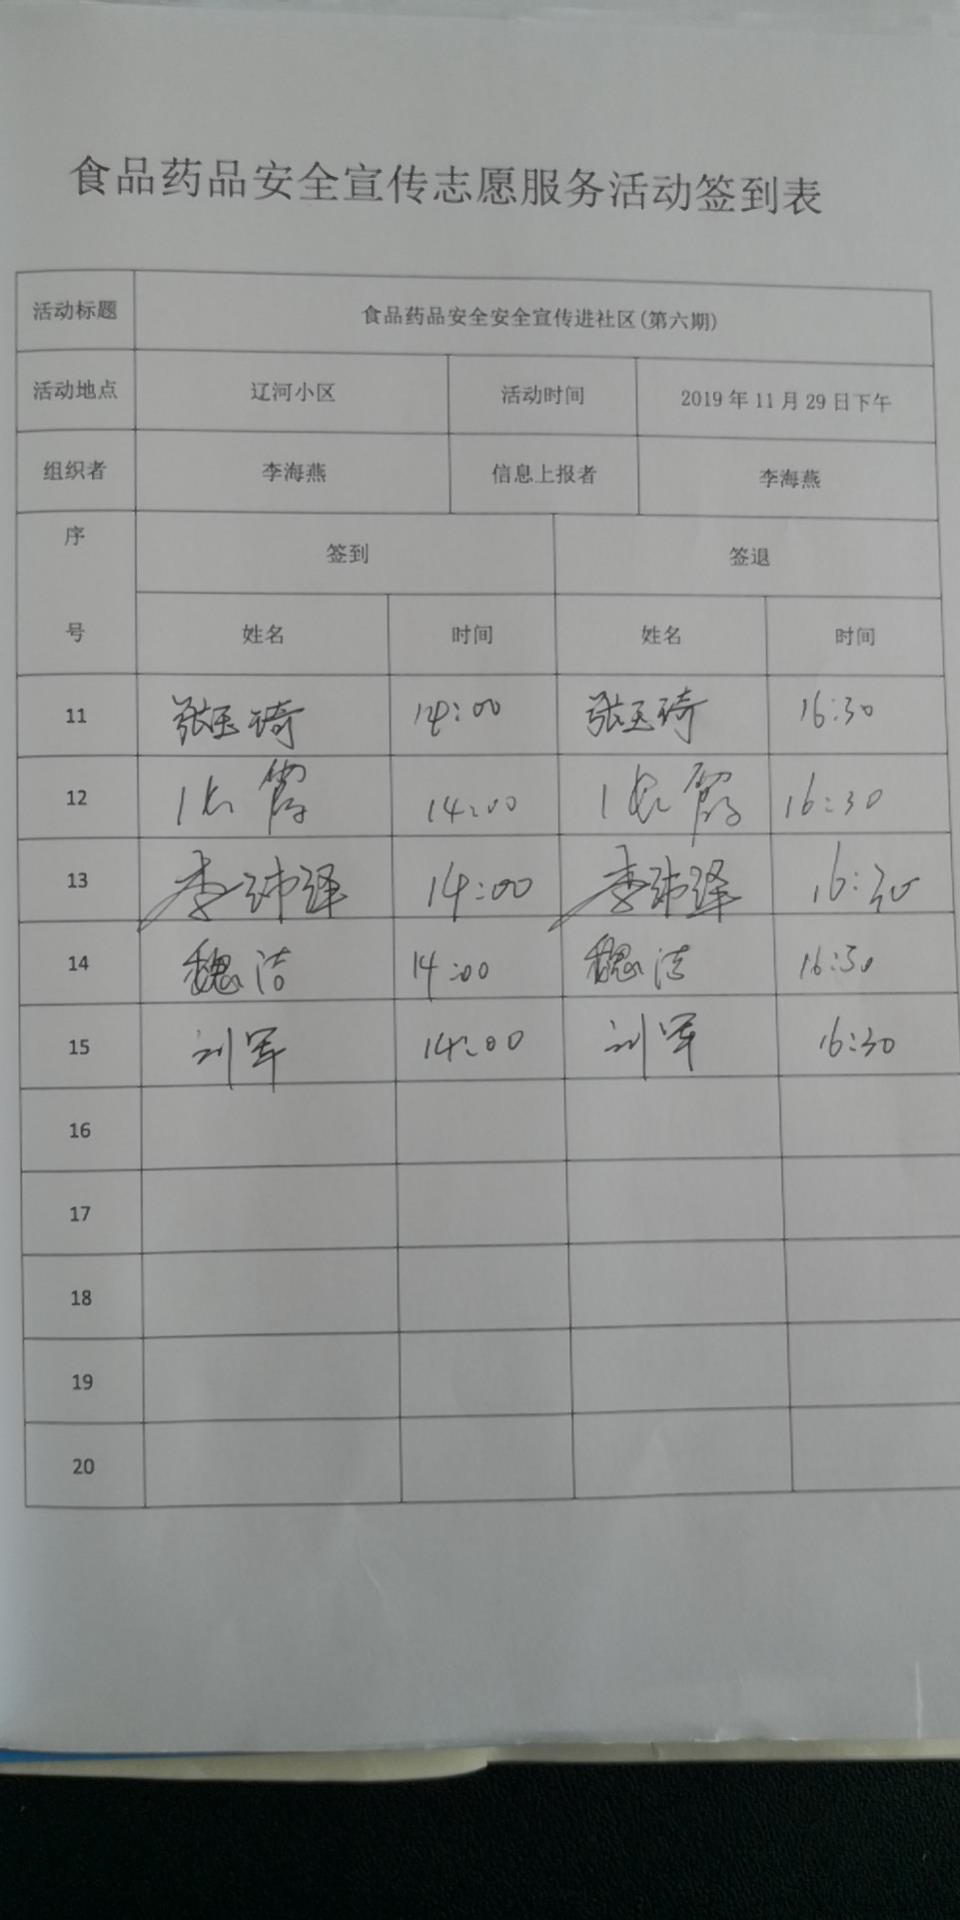 食品药品安全宣传志愿服务活动签到表
活动标题 食品药品安全安全宣传进社区(第六期)
活动地点 辽河小区 活动时间 2019年11月29日下午
组织者 李海燕 信息上报者 李海燕
序号 签到 签退
姓名 时间 姓名 时间
11 张玉琦 14:00 张玉琦 16:30
12 张霞 14:00 张霞 16:30
13 李沛泽 14:00 李沛泽 16:30
14 魏洁 14:00 魏洁 16:30
15 刘军 14:00 刘军 16:30
16
17
18
19
20